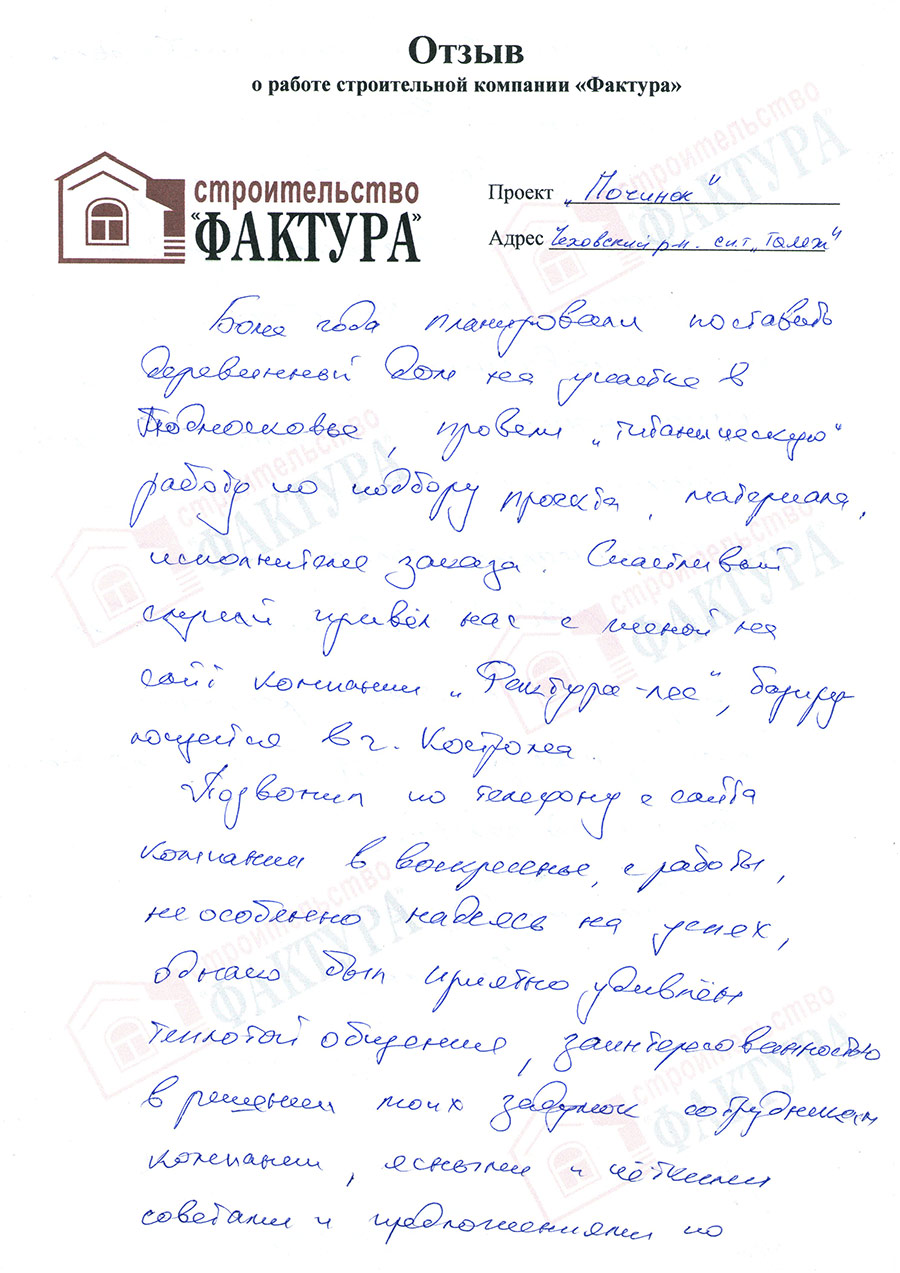 Отзыв
о работе строительной компании «Фактура»
строительство
"ФАКТУРА"
Проект „Починок"
Адрес Чеховский р-н. снт „Талеж"
Более года планировали поставить
деревянный дом на участке в
Подмосковье, провели „титаническую"
работу по подбору проекта, материала,
исполнителя заказа. Счастливый
случай привёл нас с женой на
сайт компании „Фактура-лес", базиру-
ющейся в г. Кострома.
Позвонил по телефону с сайта
компании в воскресенье, с работы,
не особенно надеясь на успех,
однако был приятно удивлён
теплотой общения, заинтересованностью
в решении моих задумок сотрудниками
компании, ясными и чёткими
советами и предложениями по